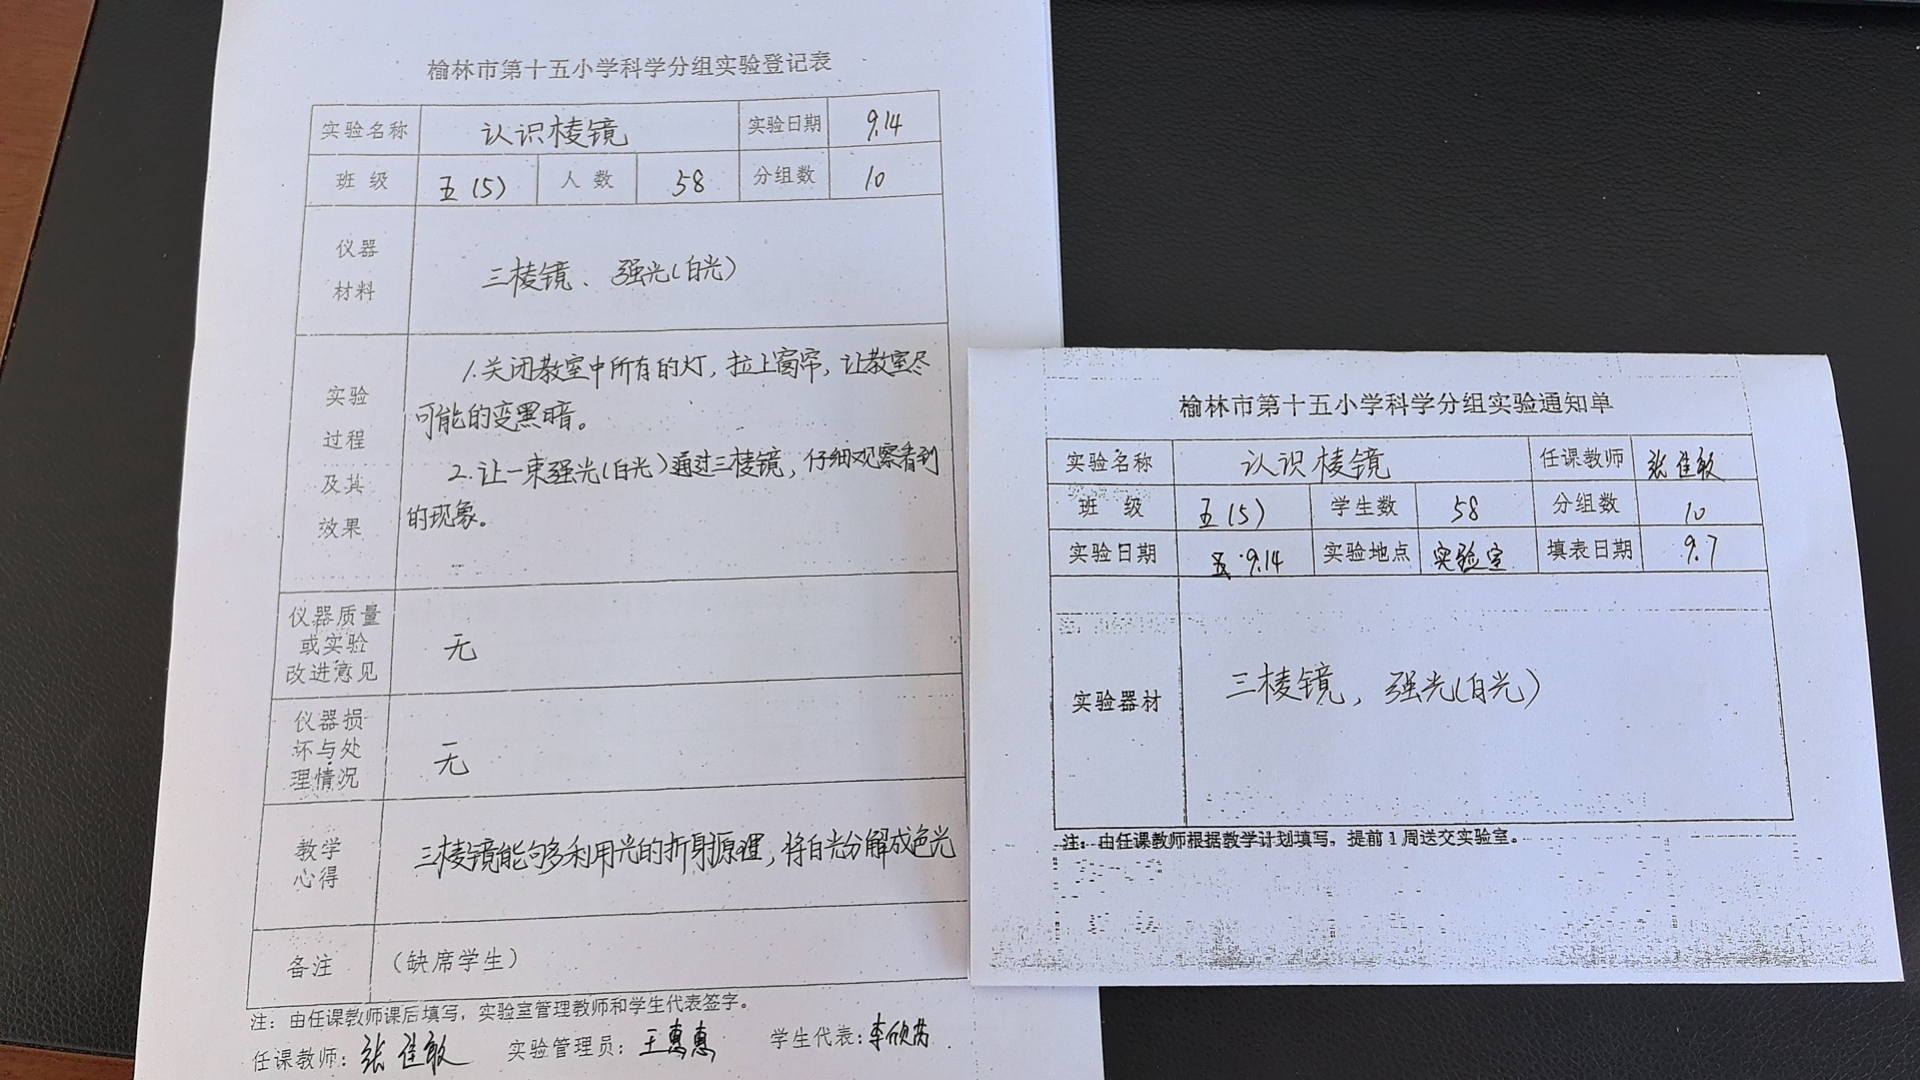 榆林市第十五小学科学分组实验登记表
实验名称 认识棱镜 实验日期 9.14
班 级 五(5) 人 数 58 分组数 10
仪器
材料
三棱镜、强光(白光)
实验
过程
及其
效果
1.关闭教室中所有的灯,拉上窗帘,让教室尽
可能的变黑暗。
2.让一束强光(白光)通过三棱镜,仔细观察看到
的现象。
仪器质量
或实验
改进意见
无
仪器损
坏与处
理情况
无
教学
心得
三棱镜能够多利用光的折射原理,将白光分解成色光
备注 (缺席学生)
注:由任课教师课后填写,实验室管理教师和学生代表签字。
任课教师:张佳敏 实验管理员:王惠惠 学生代表:李欣芮
榆林市第十五小学科学分组实验通知单
实验名称 认识棱镜 任课教师 张佳敏
班 级 五(5) 学生数 58 分组数 10
实验日期 9.14 实验地点 实验室 填表日期 9.7
实验器材 三棱镜,强光(白光)
注:由任课教师根据教学计划填写,提前1周送交实验室。